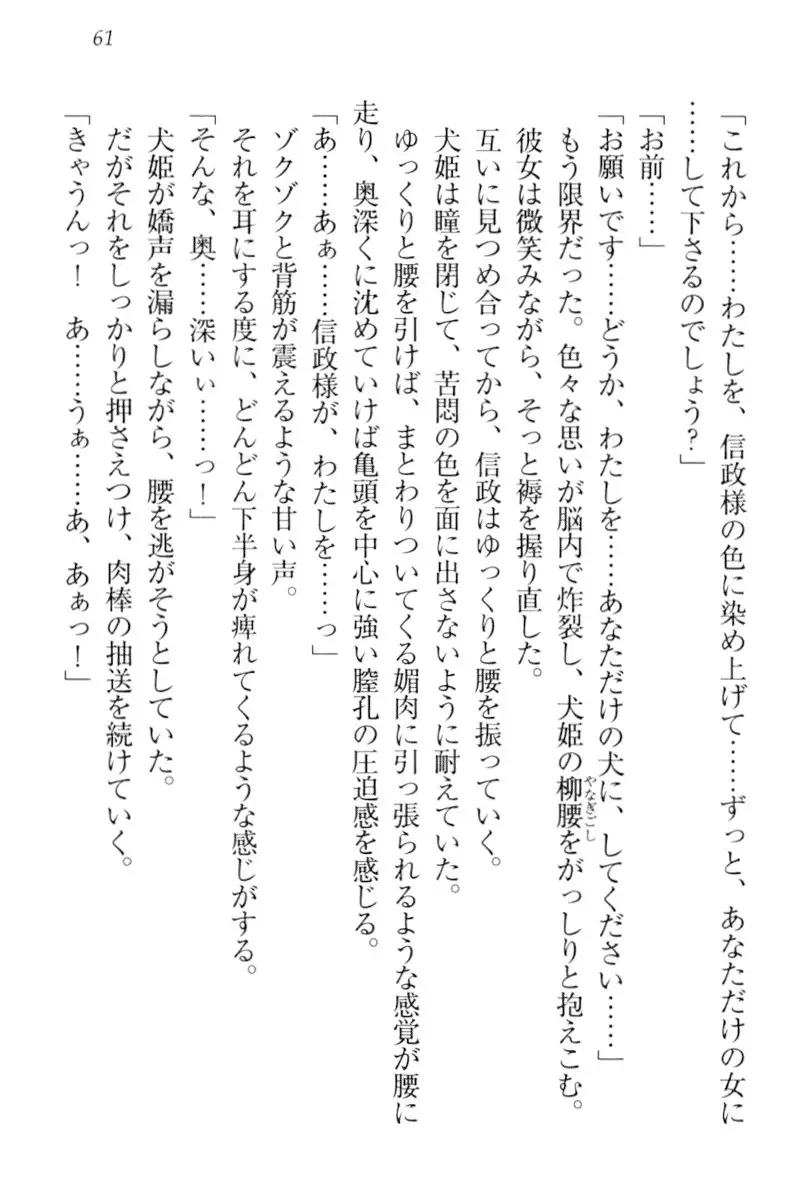 61
「これから……わたしを、信政様の色に染め上げて……ずっと、あなただけの女に
……して下さるのでしょう?」
「お前……」
「お願いです……どうか、わたしを……あなただけの犬に、してください……」
もう限界だった。色々な思いが脳内で炸裂し、犬姫の柳腰をがっしりと抱えこむ。
やなぎごし
彼女は微笑みながら、そっと褥を握り直した。
互いに見つめ合ってから、信政はゆっくりと腰を振っていく。
犬姫は瞳を閉じて、苦悶の色を面に出さないように耐えていた。
ゆっくりと腰を引けば、まとわりついてくる媚肉に引っ張られるような感覚が腰に
走り、奥深くに沈めていけば亀頭を中心に強い膣孔の圧迫感を感じる。
「あ……あぁ……信政様が、わたしを……っ」
ゾクゾクと背筋が震えるような甘い声。
それを耳にする度に、どんどん下半身が痺れてくるような感じがする。
「そんな、奥……深いぃ……っ!」
犬姫が嬌声を漏らしながら、腰を逃がそうとしていた。
だがそれをしっかりと押さえつけ、肉棒の抽送を続けていく。
「きゃうんっ! あ……うぁ……あ、あぁっ!」